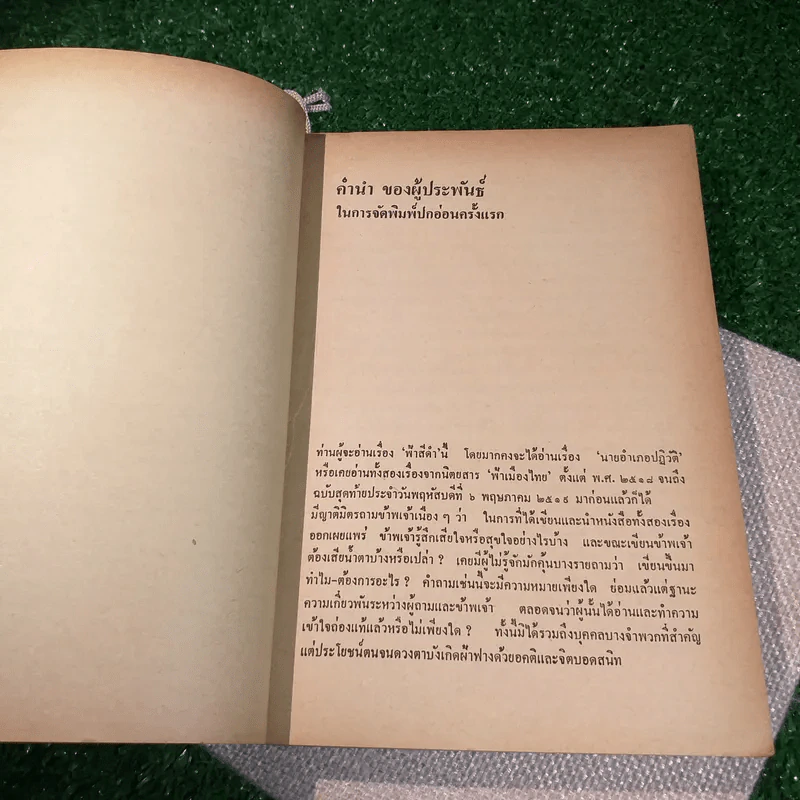 คำนำ ของผู้ประพันธ์
ในการจัดพิมพ์ปกอ่อนครั้งแรก
ท่านผู้จะอ่านเรื่อง ‘ฟ้าสีดำ’นี้ โดยมากคงจะได้อ่านเรื่อง ‘นายอำเภอปฏิวัติ’
หรือเคยอ่านทั้งสองเรื่องจากนิตยสาร ‘ฟ้าเมืองไทย’ ตั้งแต่ พ.ศ. ๒๕๑๘ จนถึง
ฉบับสุดท้ายประจำวันพฤหัสบดีที่ ๖ พฤษภาคม ๒๕๑๙ มาก่อนแล้วก็ได้
มีญาติมิตรถามข้าพเจ้าเนือง ๆ ว่า ในการที่ได้เขียนและนำหนังสือทั้งสองเรื่อง
ออกเผยแพร่ ข้าพเจ้ารู้สึกเสียใจหรือสุขใจอย่างไรบ้าง และขณะเขียนข้าพเจ้า
ต้องเสียน้ำตาบ้างหรือเปล่า ? เคยมีผู้ไม่รู้จักมักคุ้นบางรายถามว่า เขียนขึ้นมา
ทำไม-ต้องการอะไร ? คำถามเช่นนี้จะมีความหมายเพียงใด ย่อมแล้วแต่ฐานะ
ความเกี่ยวพันระหว่างผู้ถามและข้าพเจ้า ตลอดจนว่าผู้นั้นได้อ่านและทำความ
เข้าใจถ่องแท้แล้วหรือไม่เพียงใด ? ทั้งนี้มิได้รวมถึงบุคคลบางจำพวกที่สำคัญ
แต่ประโยชน์ตนจนดวงตาบังเกิดฝ้าฟางด้วยอคติและจิตบอดสนิท